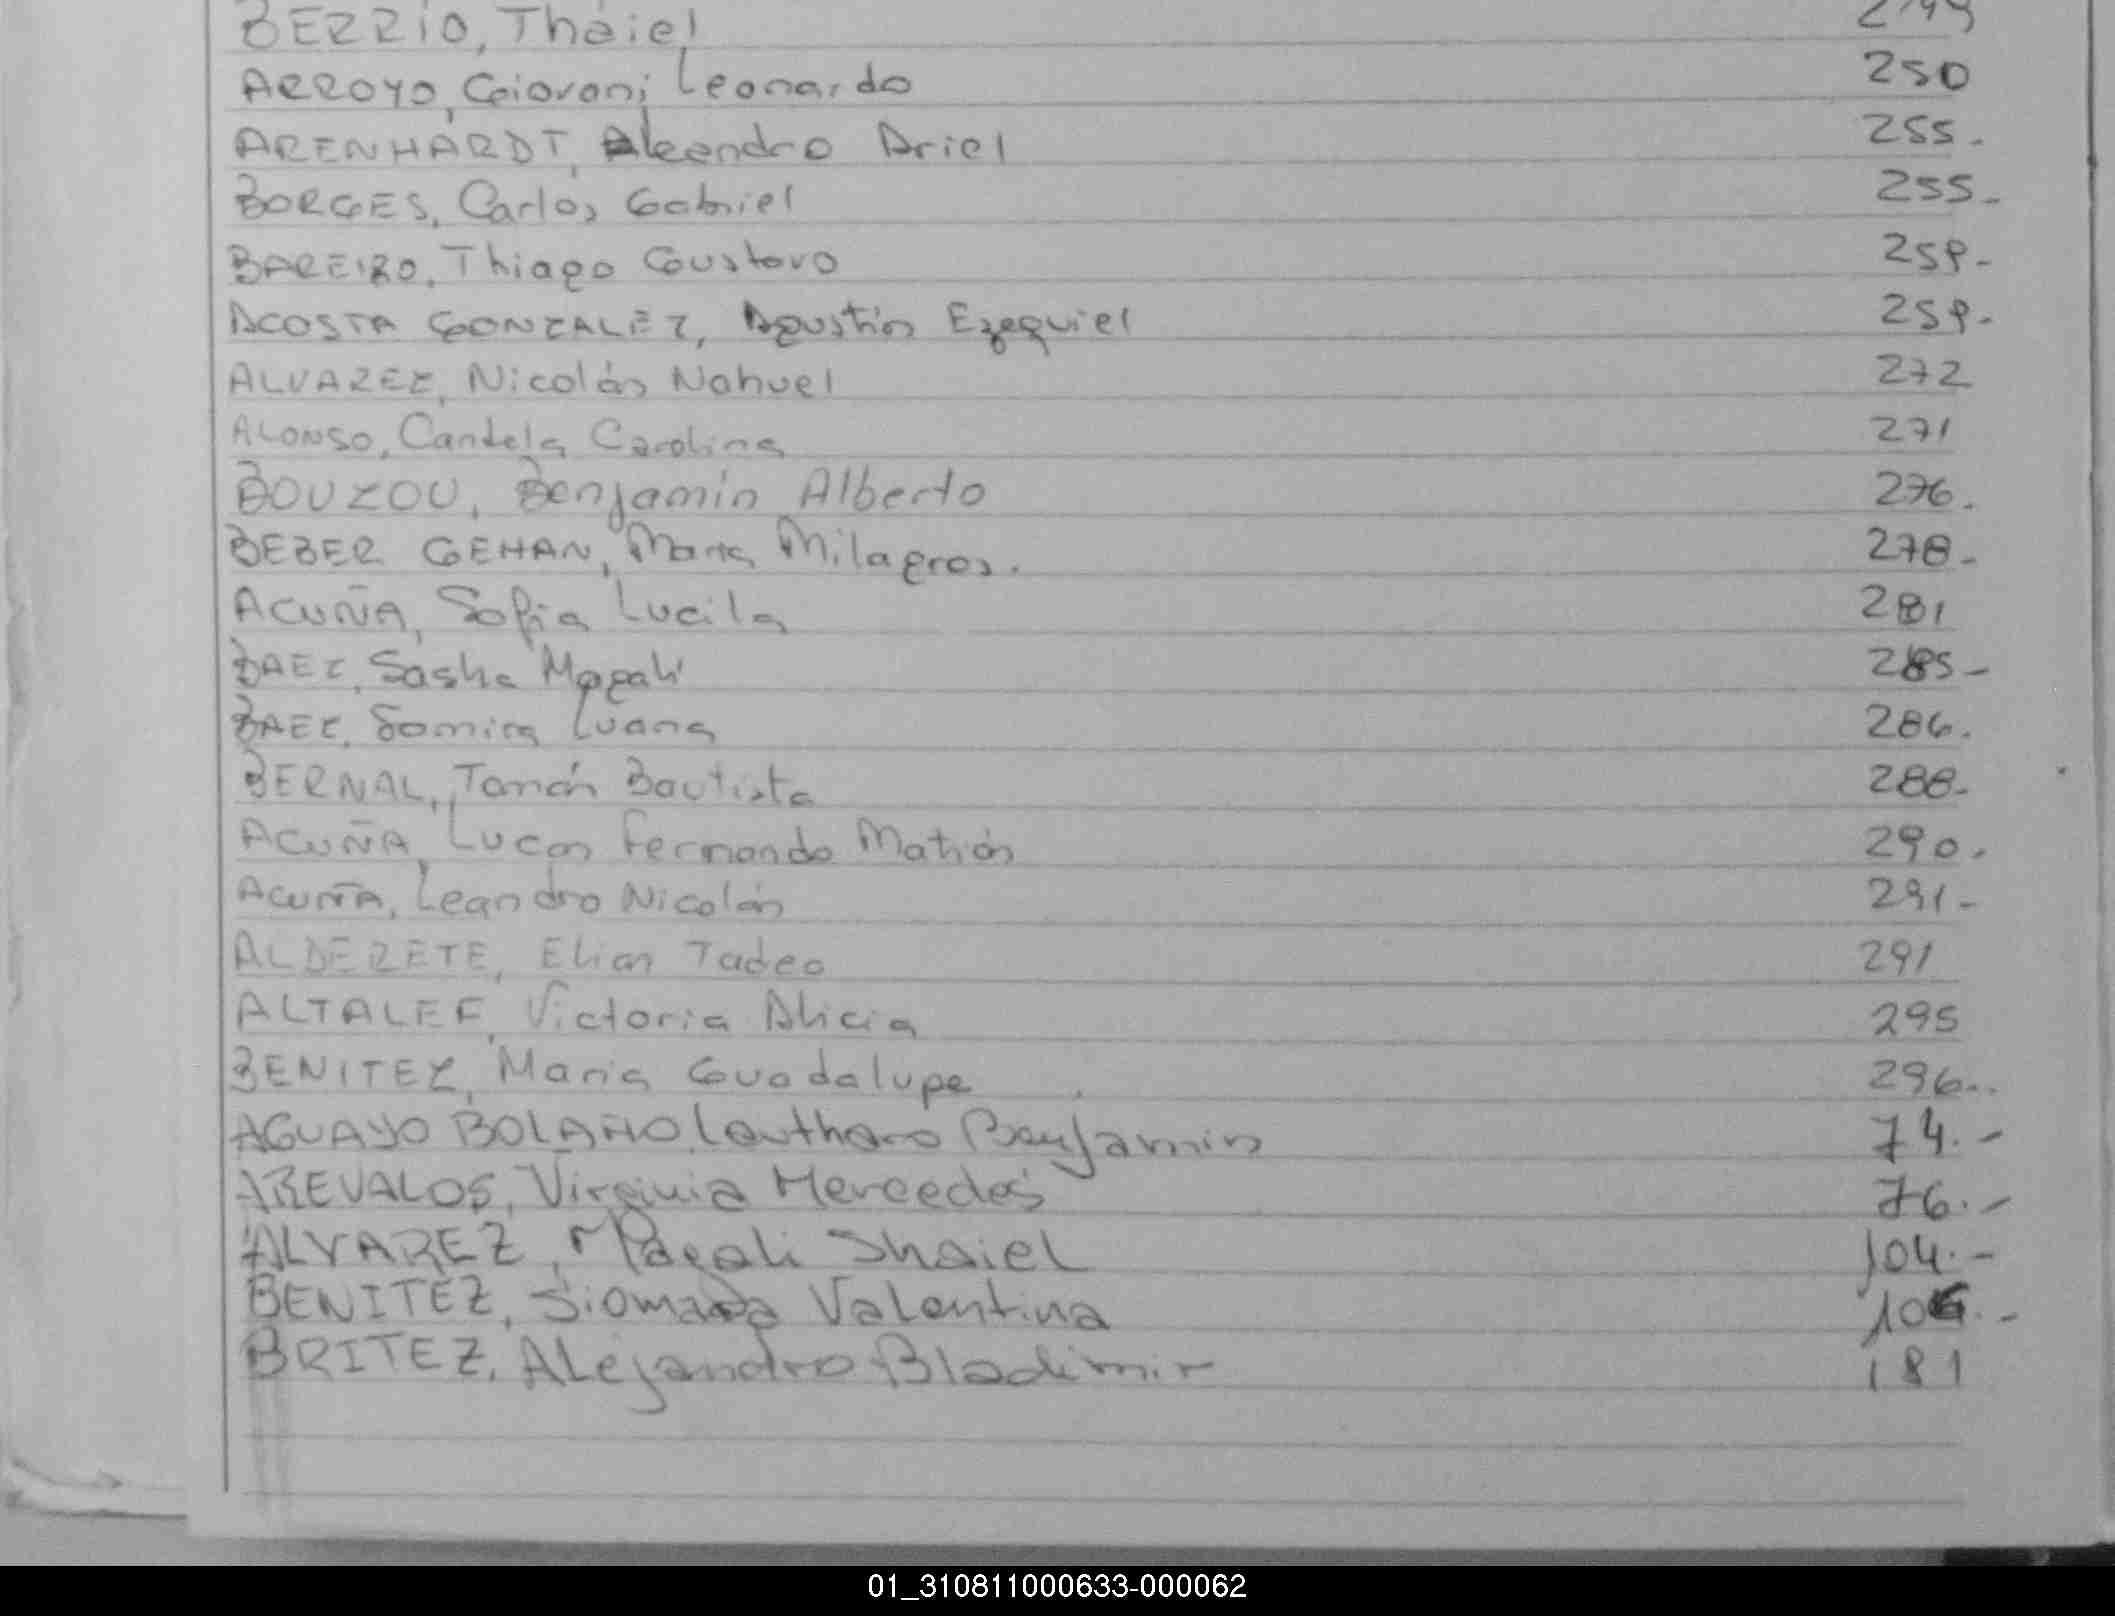 BERRIO, Thaiel 249
ARROYO, Giovani Leonardo 250
ARENHARDT, Aleendro Ariel 255.
BORGES, Carlos Gabriel 255-
BAREIRO, Thiago Gustavo 259-
ACOSTA GONZALEZ, Agustín Ezequiel 259-
ALVAREZ, Nicolás Nahuel 272
ALONSO, Candela Carolina 271
BOUZOU, Benjamín Alberto 276.
BEBER GEHAN, Maria Milagros. 278-
ACUÑA, Sofia Lucila 281
BAEZ, Sasha Magali 285-
BAEZ, Samira Luana 286.
BERNAL, Tomás Bautista 288-
ACUÑA, Lucas Fernando Matias 290.
ACUÑA, Leandro Nicolás 291-
ALDERETE, Elian Tadeo 291
ALTALEF, Victoria Alicia 295
BENITEZ, Maria Guadalupe 296..
AGUAYO BOLAÑO, Lautharo Benjamin 74.-
AREVALOS, Virginia Mercedes 76.-
ALVAREZ, Magali Shaiel 104.-
BENITEZ, Siomara Valentina 106.-
BRITEZ, Alejandro Bladimir 181
01_310811000633-000062